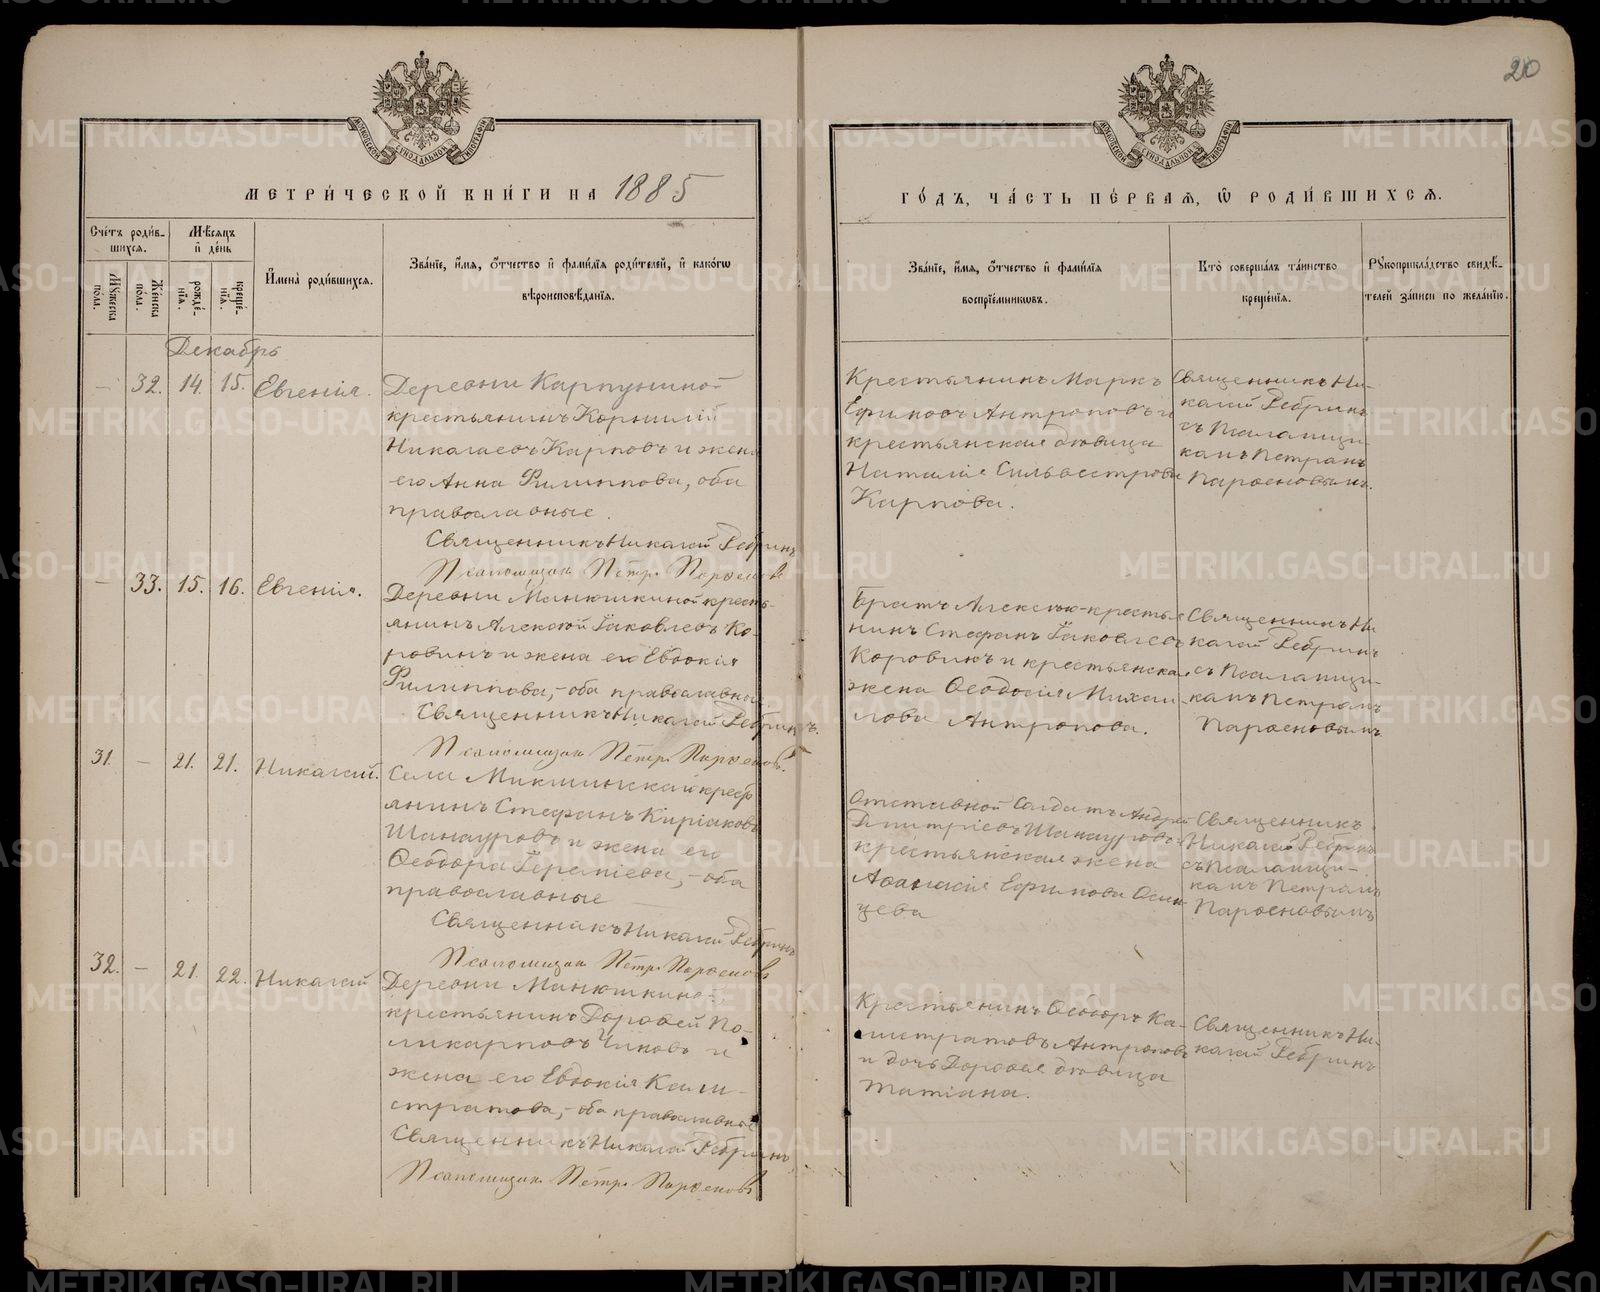 20
МЕТРИ́ЧЕСКОЙ КНИ́ГИ НА 1885
ГО́ДЪ, ЧА́СТЬ ПЕ́РВАЯ, Ѡ РОДИ́ВШИХСЯ.
Сче́тъ роди́в-
шихся.
Мѣ́сяцъ
и҆ де́нь
И҆мена̀ роди́вшихся.
Зва́нїе, и҆́мя, ѻ҆́тчество и҆ фами́лїя роди́телей, и҆ како́гѡ
вѣроисповѣ́данїя.
Мꙋ́жеска
по́ла.
Же́нска
по́ла.
рожде́-
нїя.
креще́-
нїя.
Зва́нїе, и҆́мя, ѻ҆́тчество и҆ фами́лїя
воспрїе́мникѡвъ.
Кто̀ соверша́лъ та́инство
креще́нїя.
Рꙋкоприкла́дство свидѣ́-
телей за́писи по жела́нїю.
Декабрь
— 32. 14. 15. Евгенія.
Деревни Карпушиной
крестьянинъ Корнилій
Николаевъ Карповъ и жена
его Анна Филиппова, оба
православные.
Священникъ Николай Ребринъ
Псаломщикъ Петръ Парѳеновъ
Крестьянинъ Маркъ
Ефимовъ Антроповъ и
крестьянская дѣвица
Наталія Сильвестрова
Карпова.
Священникъ Ни-
колай Ребринъ
съ Псаломщи-
комъ Петромъ
Парѳеновымъ.
— 33. 15. 16. Евгенія.
Деревни Манюшкиной кресть-
янинъ Алексѣй Іаковлевъ Ко-
ровинъ и жена его Евдокія
Филиппова, — оба православные.
Священникъ Николай Ребринъ.
Псаломщикъ Петръ Парѳеновъ.
Братъ Алексѣю - крестья-
нинъ Стефанъ Іаковлевъ
Коровинъ и крестьянская
жена Ѳеодосія Михаи-
лова Антропова.
Священникъ Ни-
колай Ребринъ
съ Псаломщи-
комъ Петромъ
Парѳеновымъ
31. — 21. 21. Николай.
Села Микшинскаго крест-
янинъ Стефанъ Киріаковъ
Шанауровъ и жена его
Ѳеодора Терентіева, — оба
православные
Священникъ Николай Ребринъ
Псаломщикъ Петръ Парѳеновъ
Отставной Солдатъ Андрей
Димитріевъ Шанауровъ
крестьянская жена
Аѳанасія Ефимова Осин-
цева
Священникъ
Николай Ребринъ
съ Псаломщи-
комъ Петромъ
Парѳеновымъ
32. — 21. 22. Николай
Деревни Манюшкиной
крестьянинъ Дороѳей По-
ликарповъ Чиковъ и
жена его Евдокія Кали-
стратова, — оба православные
Священникъ Николай Ребринъ
Псаломщикъ Петръ Парѳеновъ
Крестьянинъ Ѳеодоръ Ка-
листратовъ Антроповъ
и дочь Дороѳея дѣвица
Татіана.
Священникъ Ни-
колай Ребринъ
METRIKI.GASO-URAL.RU